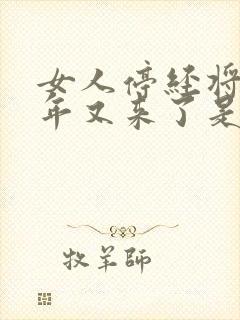 女人停经将
年又来了是
牧羊师